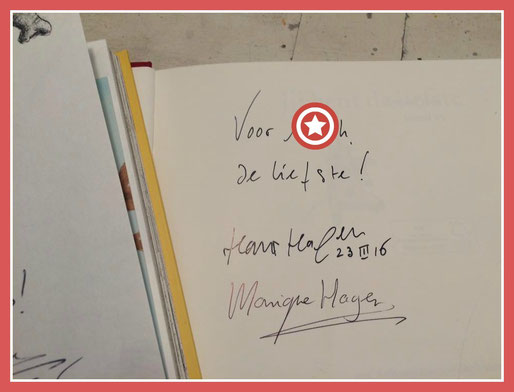 Voor
de liefste!
Hans Hagen
23 III 16
Monique Hagen